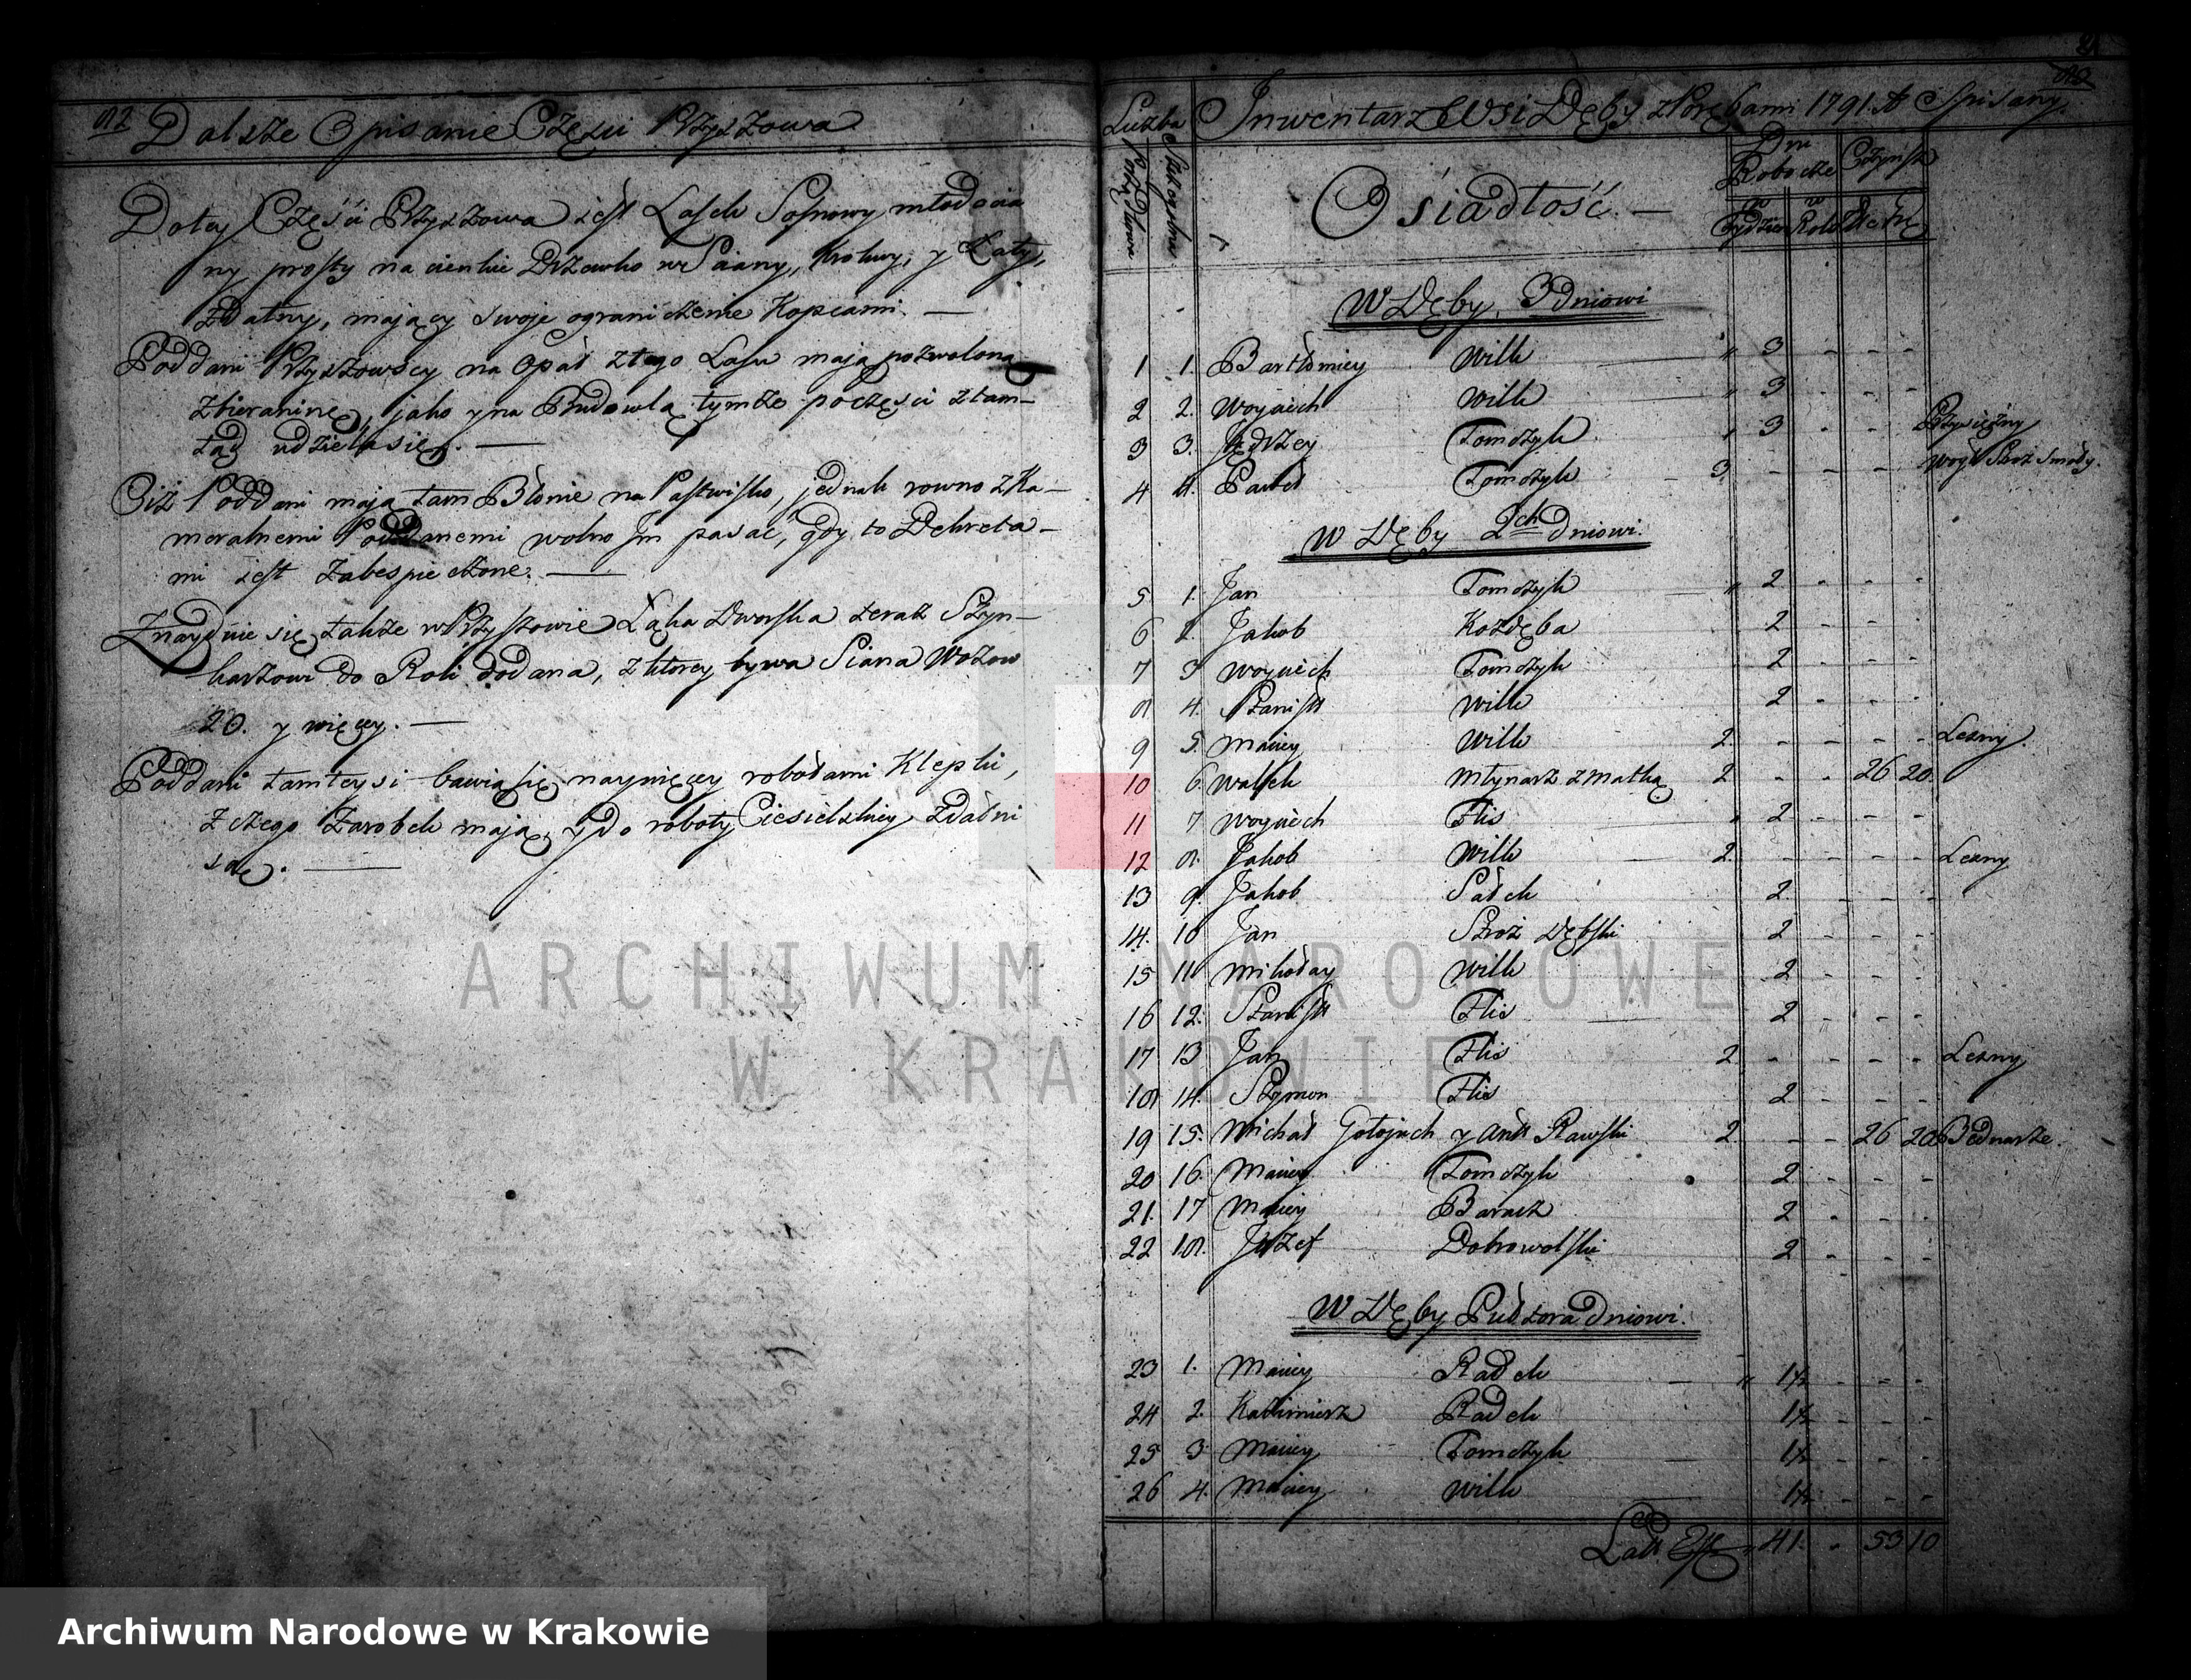 82 Dalsze Opisanie Części Przyszowa
Do tey Części Przyszowa jest Lasek Sosnowy młodocia
ny prosty na cienkie Drzewko w Sciany, Krokwy, y Łaty,
zdatny, maiący swoje ograniczenie Kopcami. —
Poddani Przyszowscy na Opał z tego Lasu maią pozwoloną
zbieraninę, jako y na Budowlą tymże poczęści ztam—
tąd udziela się. —
Ciż Poddani maią tam Błonie na Pastwisko, jednak rowno z Ka—
meralnemi Poddanemi wolno Im pasać, gdy to Dekreta—
mi jest zabespieczone. —
Znayduie się także w Przyszowie Łąka Dworska teraz Szyn—
karzowi do Roli dodana, z ktorey bywa Siana Wozow
20. y więcey. —
Poddani tamteysi bawią się naywięcey robotami Klepki,
z czego Zarobek maią, y do roboty Ciesielskiey zdatni
są. —
Liczba Inwentarz Wsi Dęby z Porębami 1791. A Spisany.
Porządkowa Szczegulna Osiadłość. — Dni Robocze Czynsz
w Tydzien w Roku Zł gr
W Dęby 3 dniowi
1 1. Bartłomiey Wilk " 3 - - -
2 2. Woyciech Wilk " 3 - - -
3 3. Jędrzey Tomczyk " 3 - - - Przysiężny
4 4. Paweł Tomczyk 3 - - - -
W Dęby 2ch Dniowi.
5 1. Jan Tomczyk " 2 - - -
6 2. Jakob Kozdęba 2 - - -
7 3 Woyciech Tomczyk 2 - - -
8 4. Stanisł Wilk 2
9 5. Maciey Wilk 2 - - - - Leśny.
10 6. Walek Młynarz z Matką 2 - - 26 20.
11 7 Woyciech Flis " 2 - - -
12 8. Jakob Wilk 2. - - - - Leśny
13 9. Jakob Sądek 2. - - -
14. 10 Jan Stroż Dębski 2 - - -
15 11 Mikołay Wilk 2 - - -
16 12. Stanisł Flis 2 - - -
17 13 Jan Flis 2 - - - - Leśny
18 14. Szymon Flis 2 - - -
19 15. Michał Gołojuch y Rawski 2. - - 26 20 Bednarze.
20 16. Maciey Tomczyk 2 - - -
21. 17 Maciey 2 - - -
22 18. Jozef Dobrowolski 2 -
W Dęby Pułtora dniowi.
23 1. Maciey Radek " 1½ - - -
24 2. Kazimierz Radek 1½ - - -
25 3 Maciey Tomczyk 1½ - - -
26 4. Maciey Wilk 1½ - - -
Latt " 41. - 53 10
ARCHIWUM NARODOWE
W KRAKOWIE
Archiwum Narodowe w Krakowie